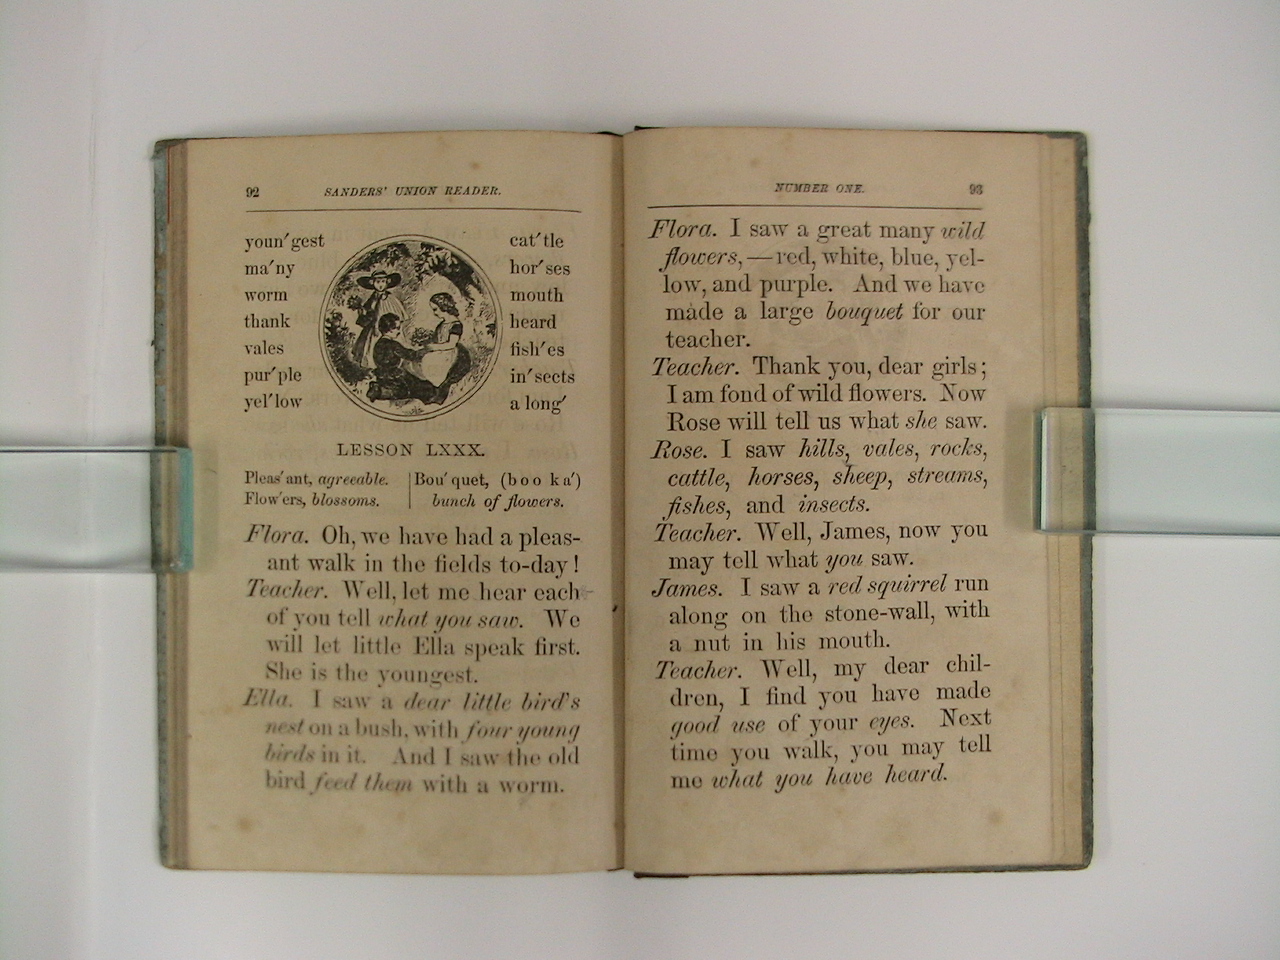 92 SANDERS' UNION READER.
youn′gest
ma′ny
worm
thank
vales
pur′ple
yel′low
cat′tle
hor′ses
mouth
heard
fish′es
in′sects
a long′
LESSON LXXX.
Pleas′ant, agreeable.
Flow′ers, blossoms.
Bou′quet, (boo ka′)
bunch of flowers.
Flora. Oh, we have had a pleas-
ant walk in the fields to-day!
Teacher. Well, let me hear each
of you tell what you saw. We
will let little Ella speak first.
She is the youngest.
Ella. I saw a dear little bird's
nest on a bush, with four young
birds in it. And I saw the old
bird feed them with a worm.
NUMBER ONE. 93
Flora. I saw a great many wild
flowers,—red, white, blue, yel-
low, and purple. And we have
made a large bouquet for our
teacher.
Teacher. Thank you, dear girls;
I am fond of wild flowers. Now
Rose will tell us what she saw.
Rose. I saw hills, vales, rocks,
cattle, horses, sheep, streams,
fishes, and insects.
Teacher. Well, James, now you
may tell what you saw.
James. I saw a red squirrel run
along on the stone-wall, with
a nut in his mouth.
Teacher. Well, my dear chil-
dren, I find you have made
good use of your eyes. Next
time you walk, you may tell
me what you have heard.